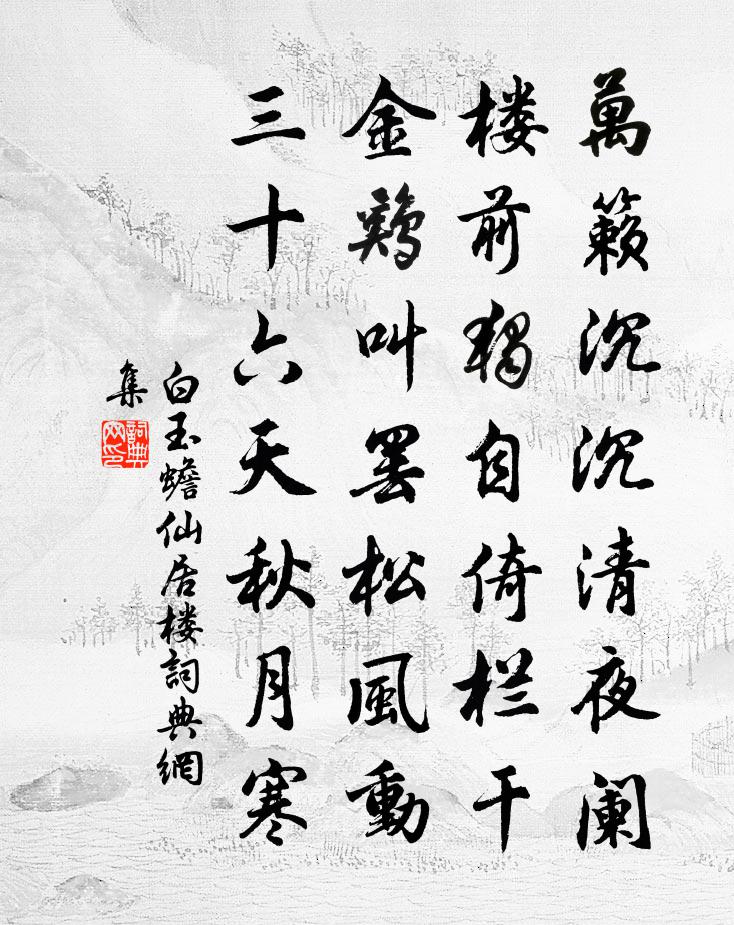 萬籁沉沉清夜阑
楼前独自倚栏干
金鷄叫罢松風動
三十六天秋月寒
白玉蟾仙居楼詞典網
集
詞典网印